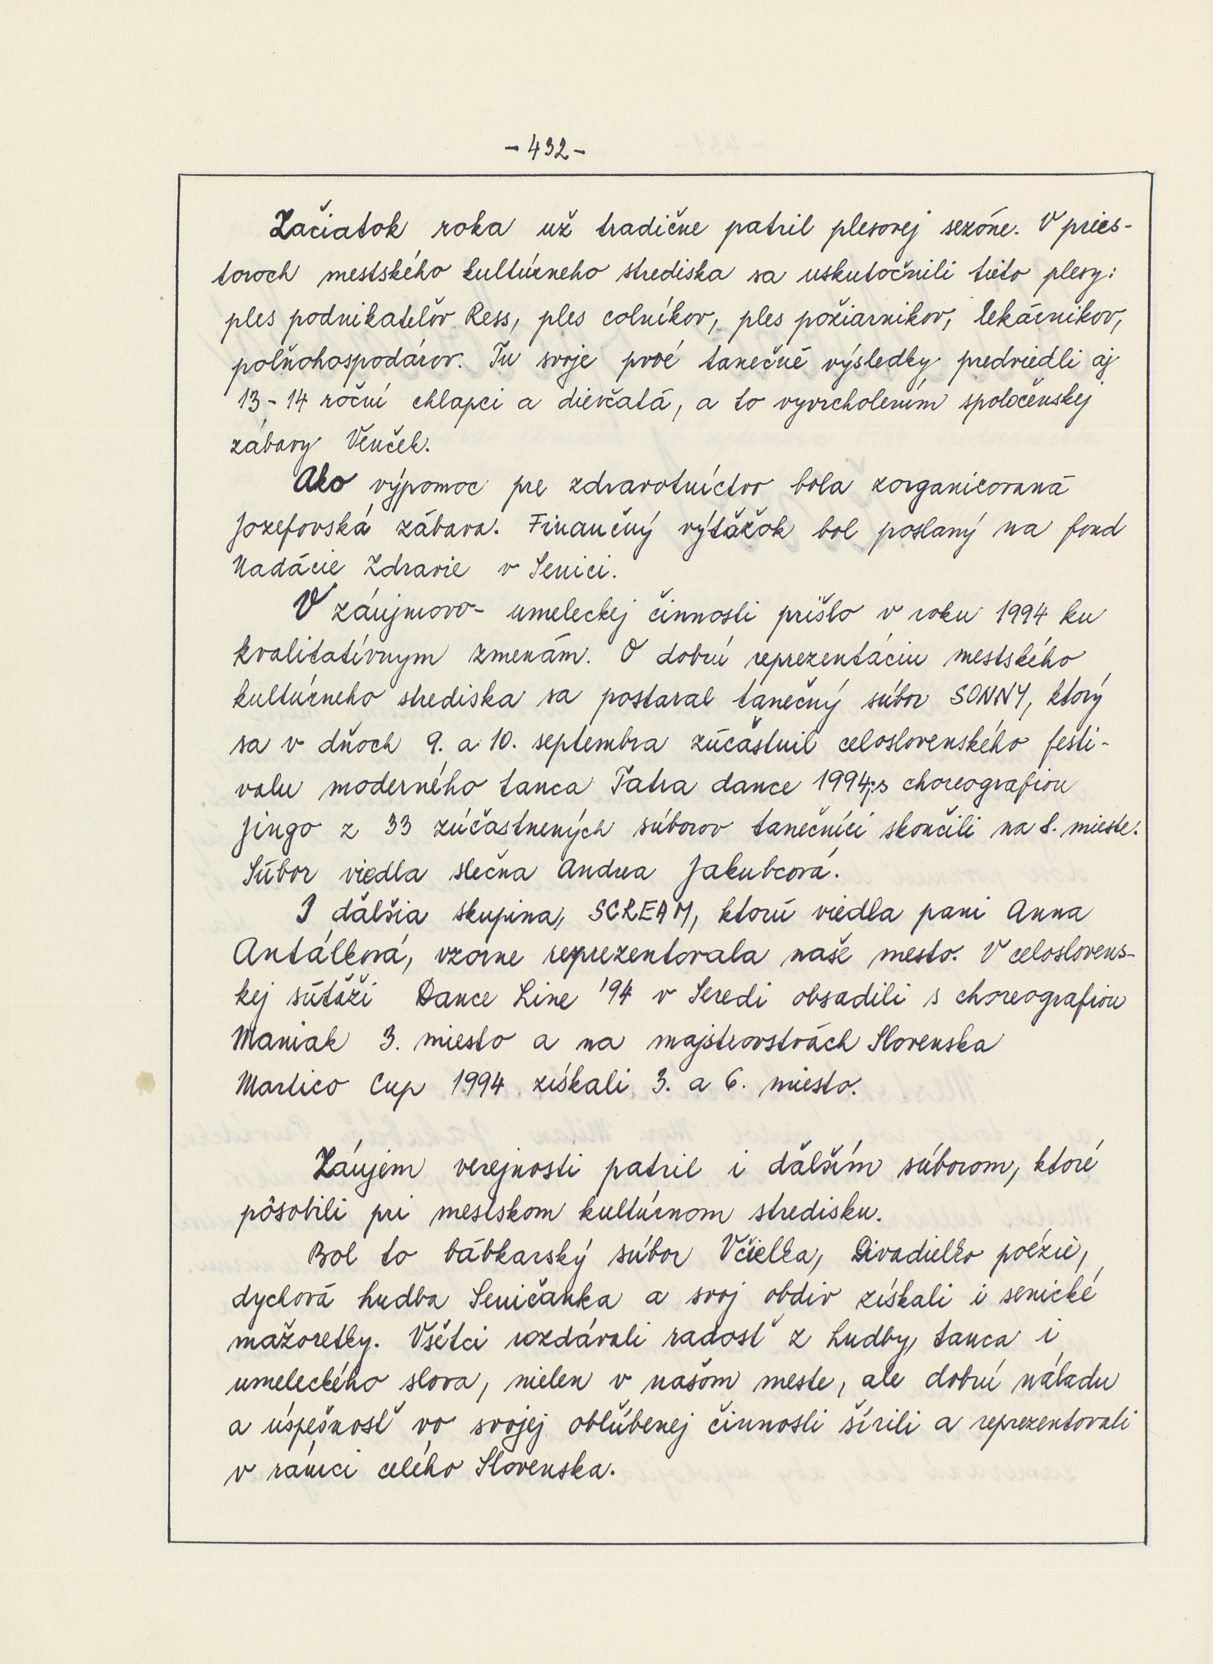 - 432 -
Začiatok roka už tradične patril plesovej sezóne. V pries-
toroch mestského kultúrneho strediska sa uskutočnili tieto plesy:
ples podnikateľov Ress, ples colníkov, ples požiarnikov, lekárnikov,
poľnohospodárov. Tu svoje prvé tanečné výsledky predviedli aj
13 - 14 roční chlapci a dievčatá, a to vyvrcholením spoločenskej
zábavy Venček.
Ako výpomoc pre zdravotníctvo bola zorganizovaná
Jozefovská zábava. Finančný výťažok bol poslaný na fond
Nadácie Zdravie v Senici.
V záujmovo- umeleckej činnosti prišlo v roku 1994 ku
kvalitatívnym zmenám. O dobrú reprezentáciu mestského
kultúrneho strediska sa postaral tanečný súbor SONNY, ktorý
sa v dňoch 9. a 10. septembra zúčastnil celoslovenského festi-
valu moderného tanca Tatra dance 1994; s choreografiou
Jingo z 33 zúčastnených súborov tanečníci skončili na 8. mieste.
Súbor viedla slečna Andrea Jakubcová.
I ďalšia skupina, SCREAM, ktorú viedla pani Anna
Antálková, vzorne reprezentovala naše mesto. V celoslovens-
kej súťaži Dance Line '94 v Seredi obsadili s choreografiou
Maniak 3. miesto a na majstrovstvách Slovenska
Martico Cup 1994 získali 3. a 6. miesto.
Záujem verejnosti patril i ďalším súborom, ktoré
pôsobili pri mestskom kultúrnom stredisku.
Bol to bábkarský súbor Včielka, Divadielko poézie,
dychová hudba Seničanka a svoj obdiv získali i senické
mažoretky. Všetci rozdávali radosť z hudby, tanca i
umeleckého slova, nielen v našom meste, ale dobrú náladu
a úspešnosť vo svojej obľúbenej činnosti šírili a reprezentovali
v rámci celého Slovenska.